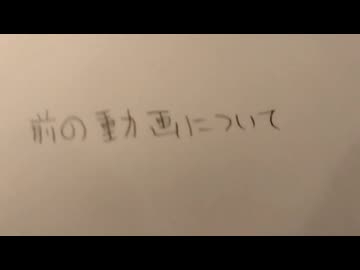 前の動画について